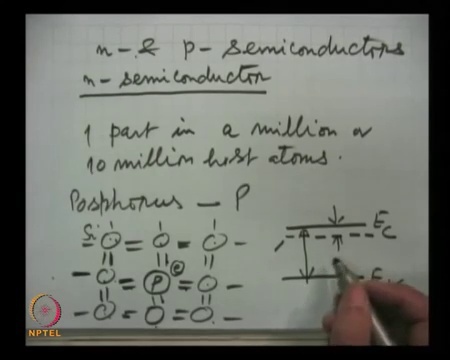 n- & p- semiconductors
n- semiconductor
1 part in a million or
10 million host atoms.
Posphorus — P
Si
P
e
Ec
E
NPTEL